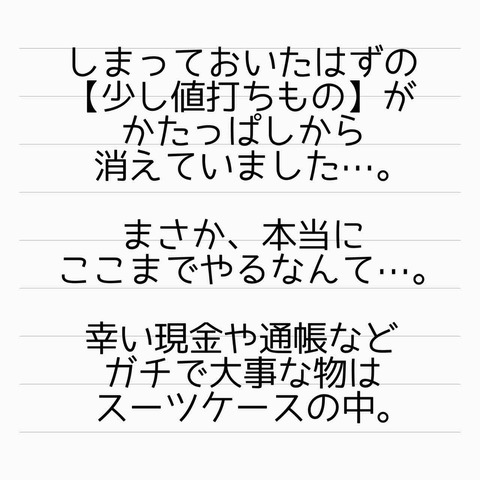 しまっておいたはずの
【少し値打ちもの】が
かたっぱしから
消えていました…。
まさか、本当に
ここまでやるなんて…。
幸い現金や通帳など
ガチで大事な物は
スーツケースの中。